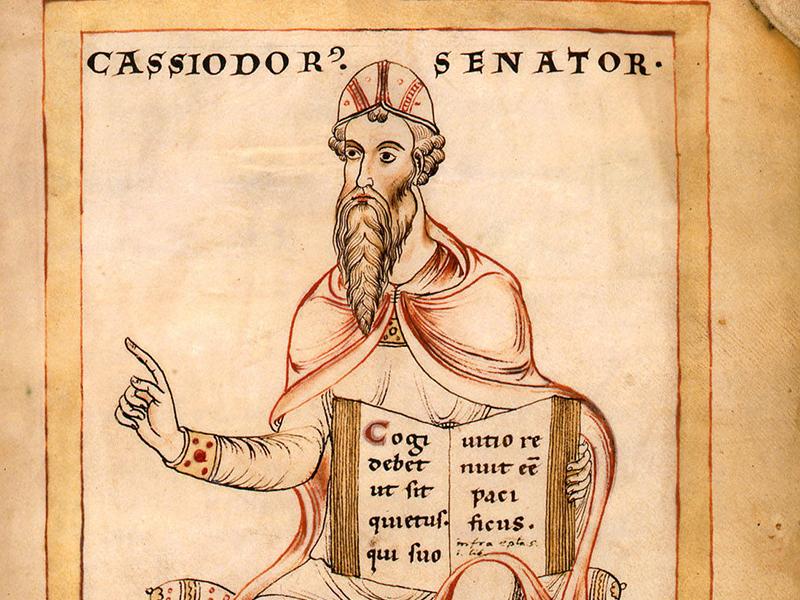 CASSIODORꝰ. SENATOR·
Cogi
debet
ut sit
quietus.
qui suo
uitio re
nuit eē
paci
ficus.
infra